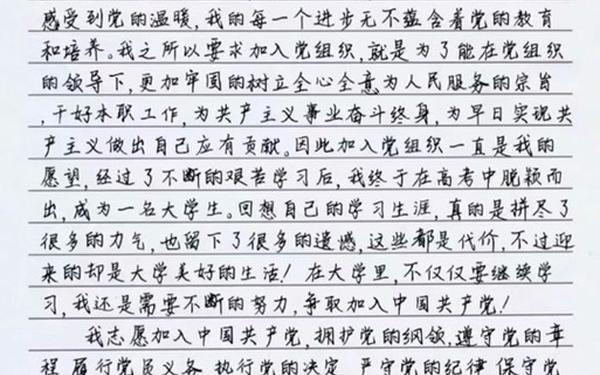 感受到党的温暖,我的每一个进步无不蕴含着党的教育
和培养。我之所以要求加入党组织,就是为了能在党组织
的领导下,更加牢固的树立全心全意为人民服务的宗旨
,干好本职工作,为共产主义事业奋斗终身,为早日实现共
产主义做出自己应有贡献。因此加入党组织一直是我的
愿望,经过了不断的艰苦学习后,我终于在高考中脱颖而
出,成为一名大学生。回想自己的学习生涯,真的是拼尽了
很多的力气,也留下了很多的遗憾,这些都是代价,不过迎
来的却是大学美好的生活!在大学里,不仅仅要继续学
习,我还是需要不断的努力,争取加入中国共产党!
我志愿加入中国共产党,拥护党的纲领,遵守党的章
程,履行党员义务,执行党的决定,严守党的纪律,保守党